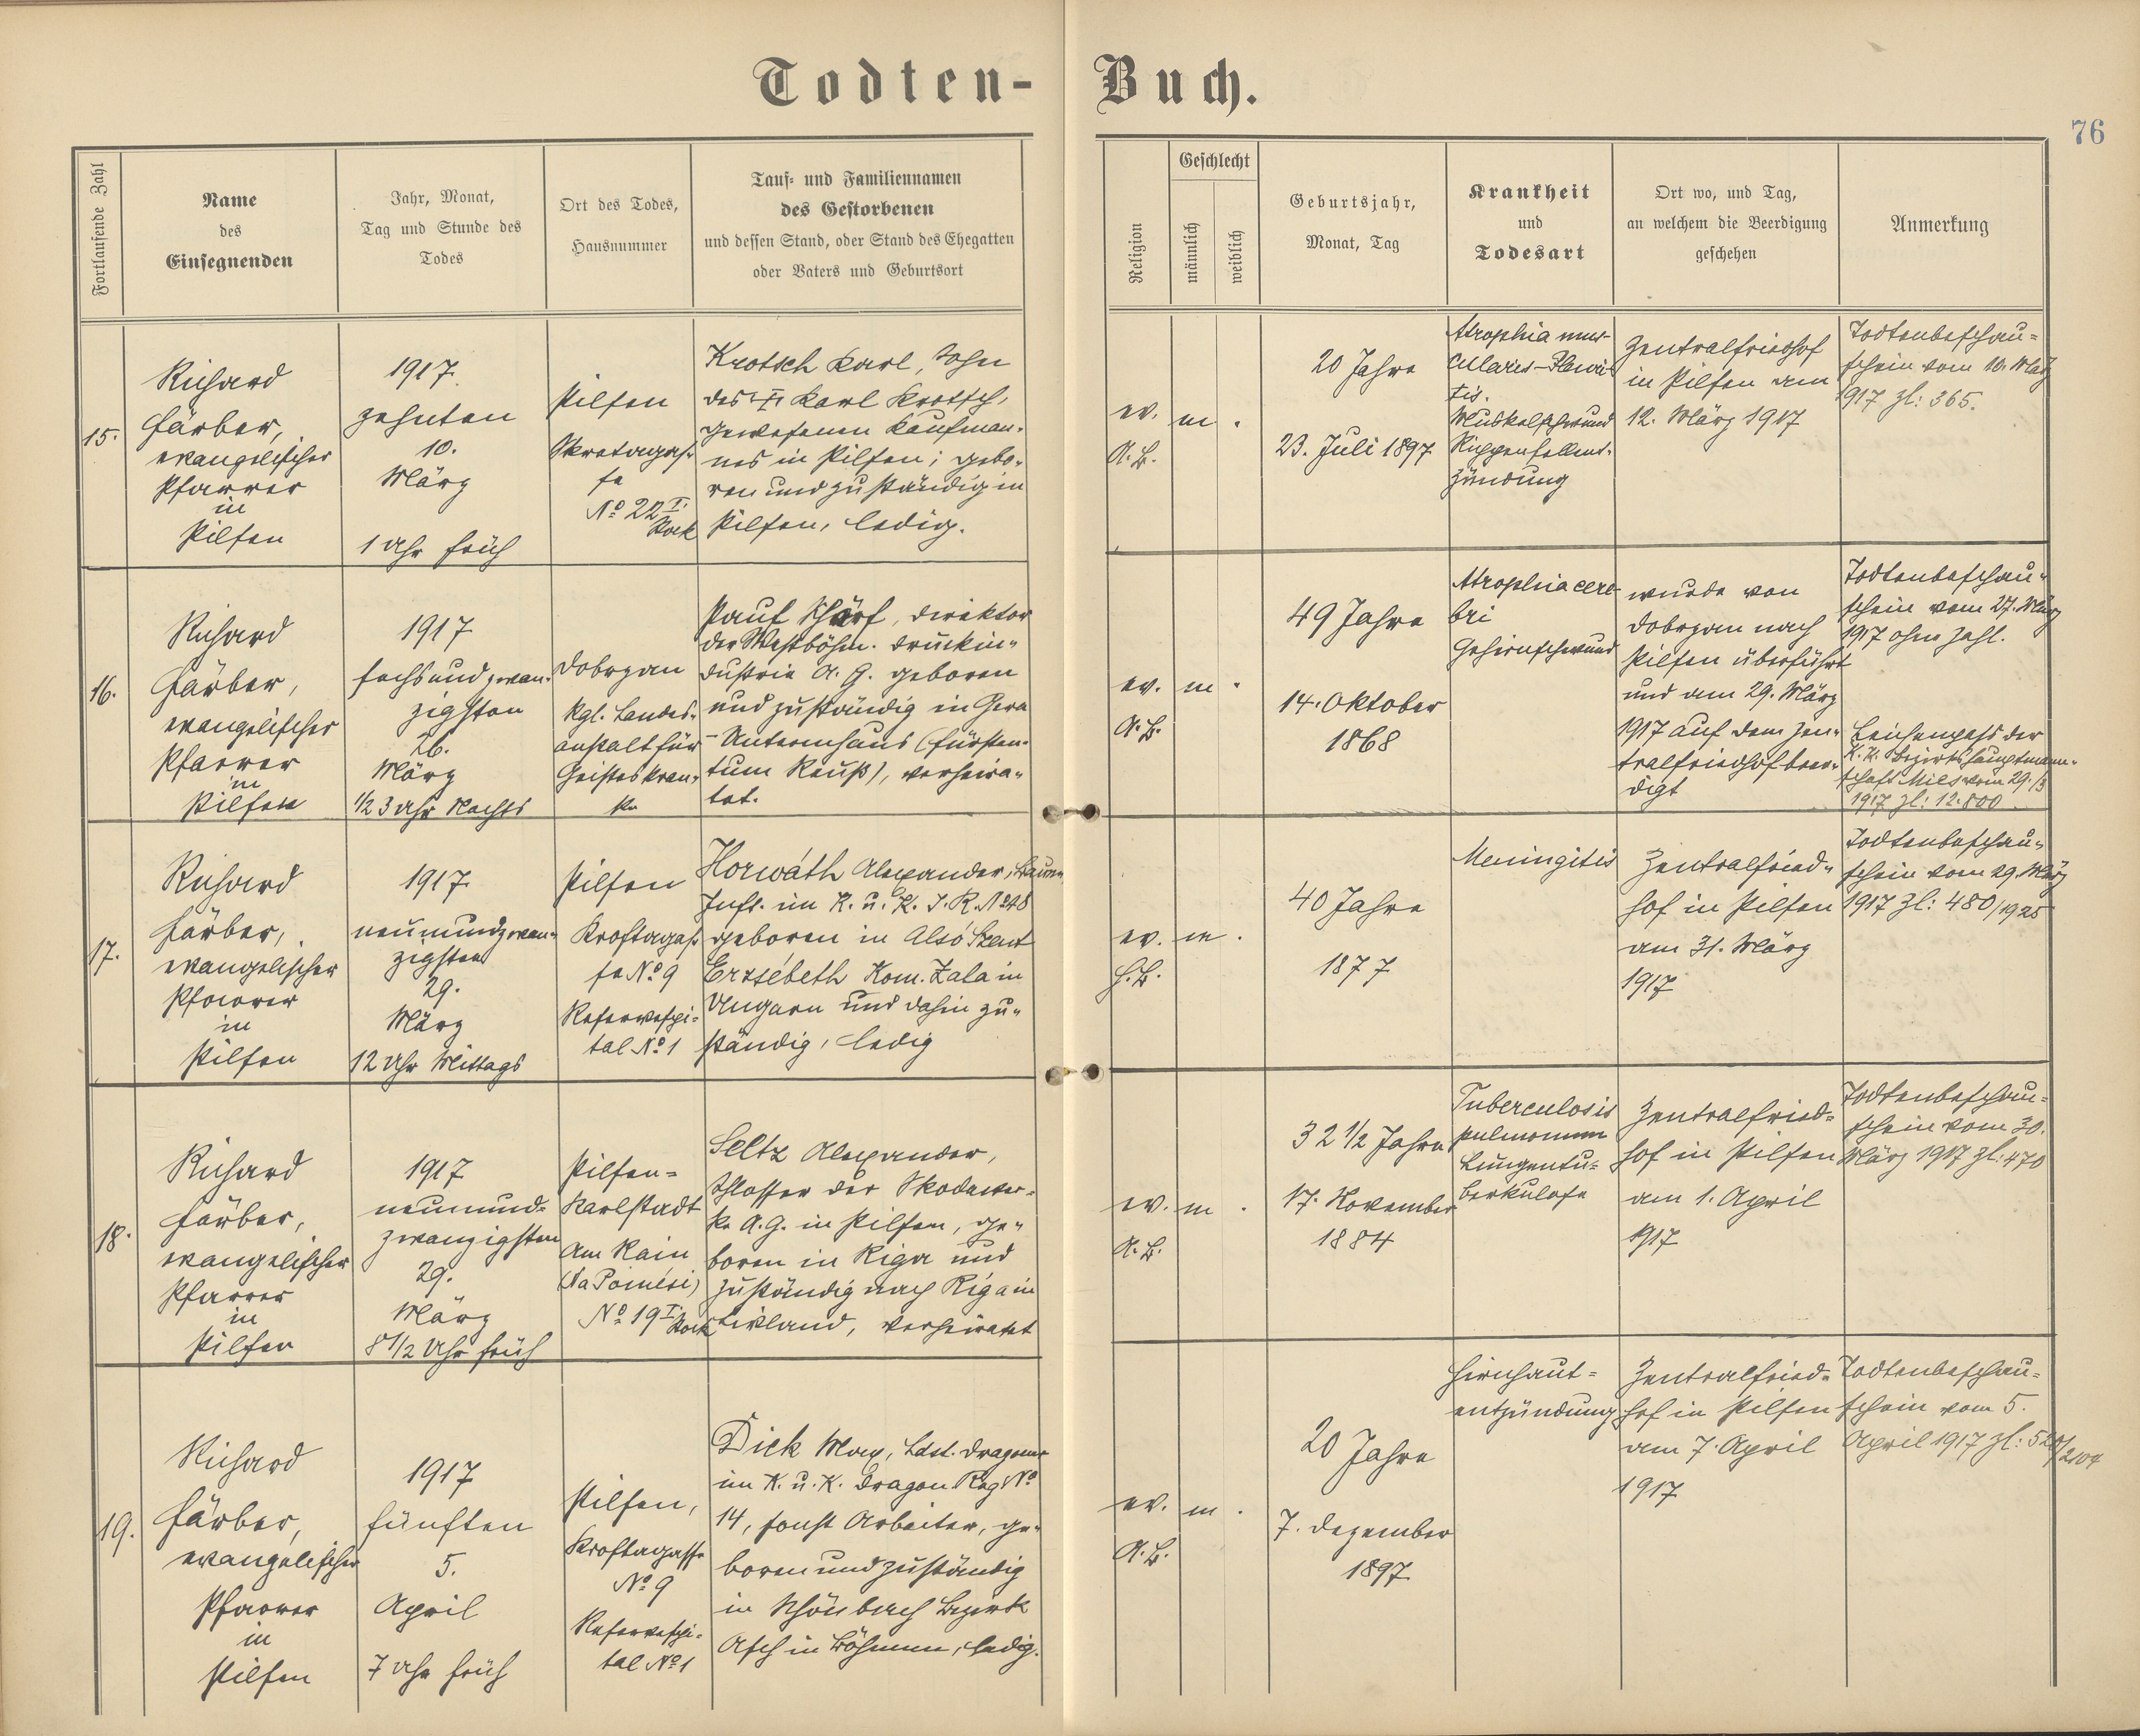 Todten-Buch.
76
Fortlaufende Zahl
Name
des
Einsegnenden
Jahr, Monat,
Tag und Stunde des
Todes
Ort des Todes,
Hausnummer
Tauf- und Familiennamen
des Gestorbenen
und dessen Stand, oder Stand des Ehegatten
oder Vaters und Geburtsort
Religion
Geschlecht
männlich
weiblich
Geburtsjahr,
Monat, Tag
Krankheit
und
Todesart
Ort wo, und Tag,
an welchem die Beerdigung
geschehen
Anmerkung
15.
Richard
Färber,
evangelischer
Pfarrer
in
Pilsen
1917
zehnten
10.
März
1 Uhr früh
Pilsen
Skretagas-
se
No 22 I.
Stock
Krotsch Karl, Sohn
des † Karl Krotsch,
gewesenen Kaufman-
nes in Pilsen; gebo-
ren und zuständig in
Pilsen, ledig.
ev.
A.B.
m
20 Jahre
23. Juli 1897
Atrophia mus-
cularis - Pleuri-
tis.
Muskelschwund
Rippenfellent-
zündung
Zentralfriedhof
in Pilsen am
12. März 1917
Todtenbeschau-
schein vom 10. März
1917 Zl: 365.
16.
Richard
Färber,
evangelischer
Pfarrer
in
Pilsen
1917
sechsundzwan-
zigsten
26.
März
1/2 3 Uhr Nachts
Dobrzan
Kgl. Landes-
anstalt für
Geisteskran-
ke
Paul Schärf, Direktor
der Westböhm. Druckin-
dustrie A. G. geboren
und zuständig in Gera
- Untermhaus (Fürsten-
tum Reuß), verheira-
tet.
ev.
A.B.
m
49 Jahre
14. Oktober
1868
Atrophia cere-
bri
Gehirnschwund
wurde von
Dobrzan nach
Pilsen überführt
und am 29. März
1917 auf dem Zen-
tralfriedhof beer-
digt
Todtenbeschau-
schein vom 27. März
1917 ohne Zahl.
Leichenpass der
K. K. Bezirkshauptmann-
schaft Mies vom 29./3
1917 Zl: 12.800
17.
Richard
Färber,
evangelischer
Pfarrer
in
Pilsen
1917
neunundzwan-
zigsten
29.
März
12 Uhr Mittags
Pilsen
Kroftagas-
se No 9
Reservespi-
tal No 1
Horwáth Alexander,
Inft. im K. u. K. I. R. N 48
geboren in Alsó Szent
Erzsébeth Kom. Zala in
Ungarn und dahin zu-
ständig, ledig
ev.
H.B.
m
40 Jahre
1877
Meningitis
Zentralfried-
hof in Pilsen
am 31. März
1917
Todtenbeschau-
schein vom 29. März
1917 Zl: 480/1925
18.
Richard
Färber,
evangelischer
Pfarrer
in
Pilsen
1917
neunund-
zwanzigsten
29.
März
8 1/2 Uhr früh
Pilsen-
Karlstadt
Am Rain
No 19 I.
Stock
Seltz Alexander,
Schlosser der Skodawer-
ke A.G. in Pilsen, ge-
boren in Riga und
zuständig nach Riga in
Livland, verheiratet
ev.
A.B.
m
32 1/2 Jahre
17. November
1884
Tuberculosis
pulmonum
Lungentu-
berkulose
Zentralfried-
hof in Pilsen
am 1. April
1917
Todtenbeschau-
schein vom 30.
März 1917 Zl: 470
19.
Richard
Färber,
evangelischer
Pfarrer
in
Pilsen
1917
fünften
5.
April
7 Uhr früh
Pilsen,
Kroftagasse
No 9
Reservespi-
tal No 1
Dick Max, Ldst. Dragoner
im K. u. K. Dragon. Reg No
14, sonst Arbeiter, ge-
boren und zuständig
in Schönbach Bezirk
Asch in Böhmen, ledig.
ev.
A.B.
m
20 Jahre
7. Dezember
1897
Hirnhaut-
entzündung
Zentralfried-
hof in Pilsen
am 7. April
1917
Todtenbeschau-
schein vom 5.
April 1917 Zl: